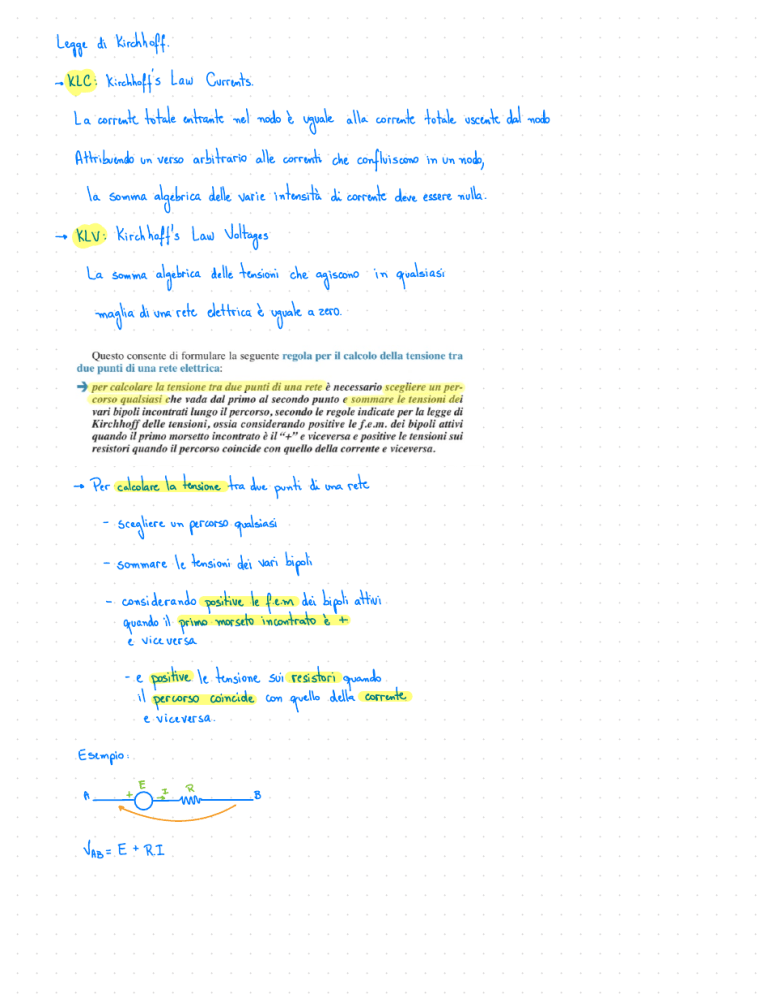 Legge di Kirchhoff.
→ KLC: Kirchhoff's Law Currents.
La corrente totale entrante nel nodo è uguale alla corrente totale uscente dal nodo
Attribuendo un verso arbitrario alle correnti che confluiscono in un nodo,
la somma algebrica delle varie intensità di corrente deve essere nulla.
→ KLV: Kirchhoff's Law Voltages
La somma algebrica delle tensioni che agiscono in qualsiasi
maglia di una rete elettrica è uguale a zero.
Questo consente di formulare la seguente regola per il calcolo della tensione tra
due punti di una rete elettrica:
➔ per calcolare la tensione tra due punti di una rete è necessario scegliere un per-
corso qualsiasi che vada dal primo al secondo punto e sommare le tensioni dei
vari bipoli incontrati lungo il percorso, secondo le regole indicate per la legge di
Kirchhoff delle tensioni, ossia considerando positive le f.e.m. dei bipoli attivi
quando il primo morsetto incontrato è il "+" e viceversa e positive le tensioni sui
resistori quando il percorso coincide con quello della corrente e viceversa.
→ Per calcolare la tensione tra due punti di una rete
- scegliere un percorso qualsiasi
- sommare le tensioni dei vari bipoli
- considerando positive le f.e.m dei bipoli attivi
quando il primo morseto incontrato è +
e viceversa
- e positive le tensione sui resistori quando
il percorso coincide con quello della corrente
e viceversa.
Esempio:
A + E I R B
V_AB = E + R.I